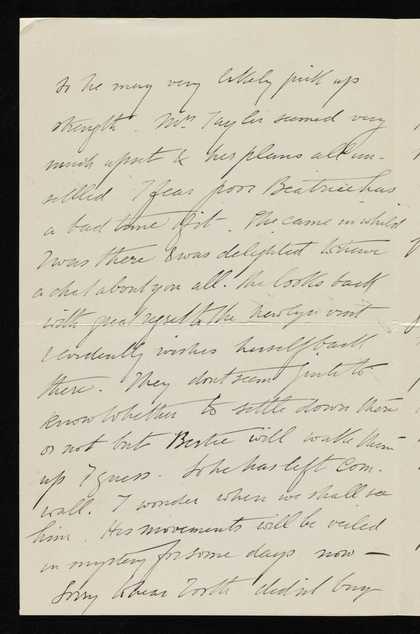 so he may very likely pick up
strength. Mrs Tayler seemed very
much upset & her plans all un-
settled I fear poor Beatrice has
a bad time of it. She came in whilst
I was there & was delighted to have
a chat about you all. She looks back
with great regret to the Newlyn visit
& evidently wishes herself back
there. They dont seem quite to
know whether to settle down there
or not but Bertie will walk them
up I guess. So he has left Corn-
wall. I wonder when we shall see
him. His movements will be veiled
in mystery for some days now —
Sorry to hear North didn't buy